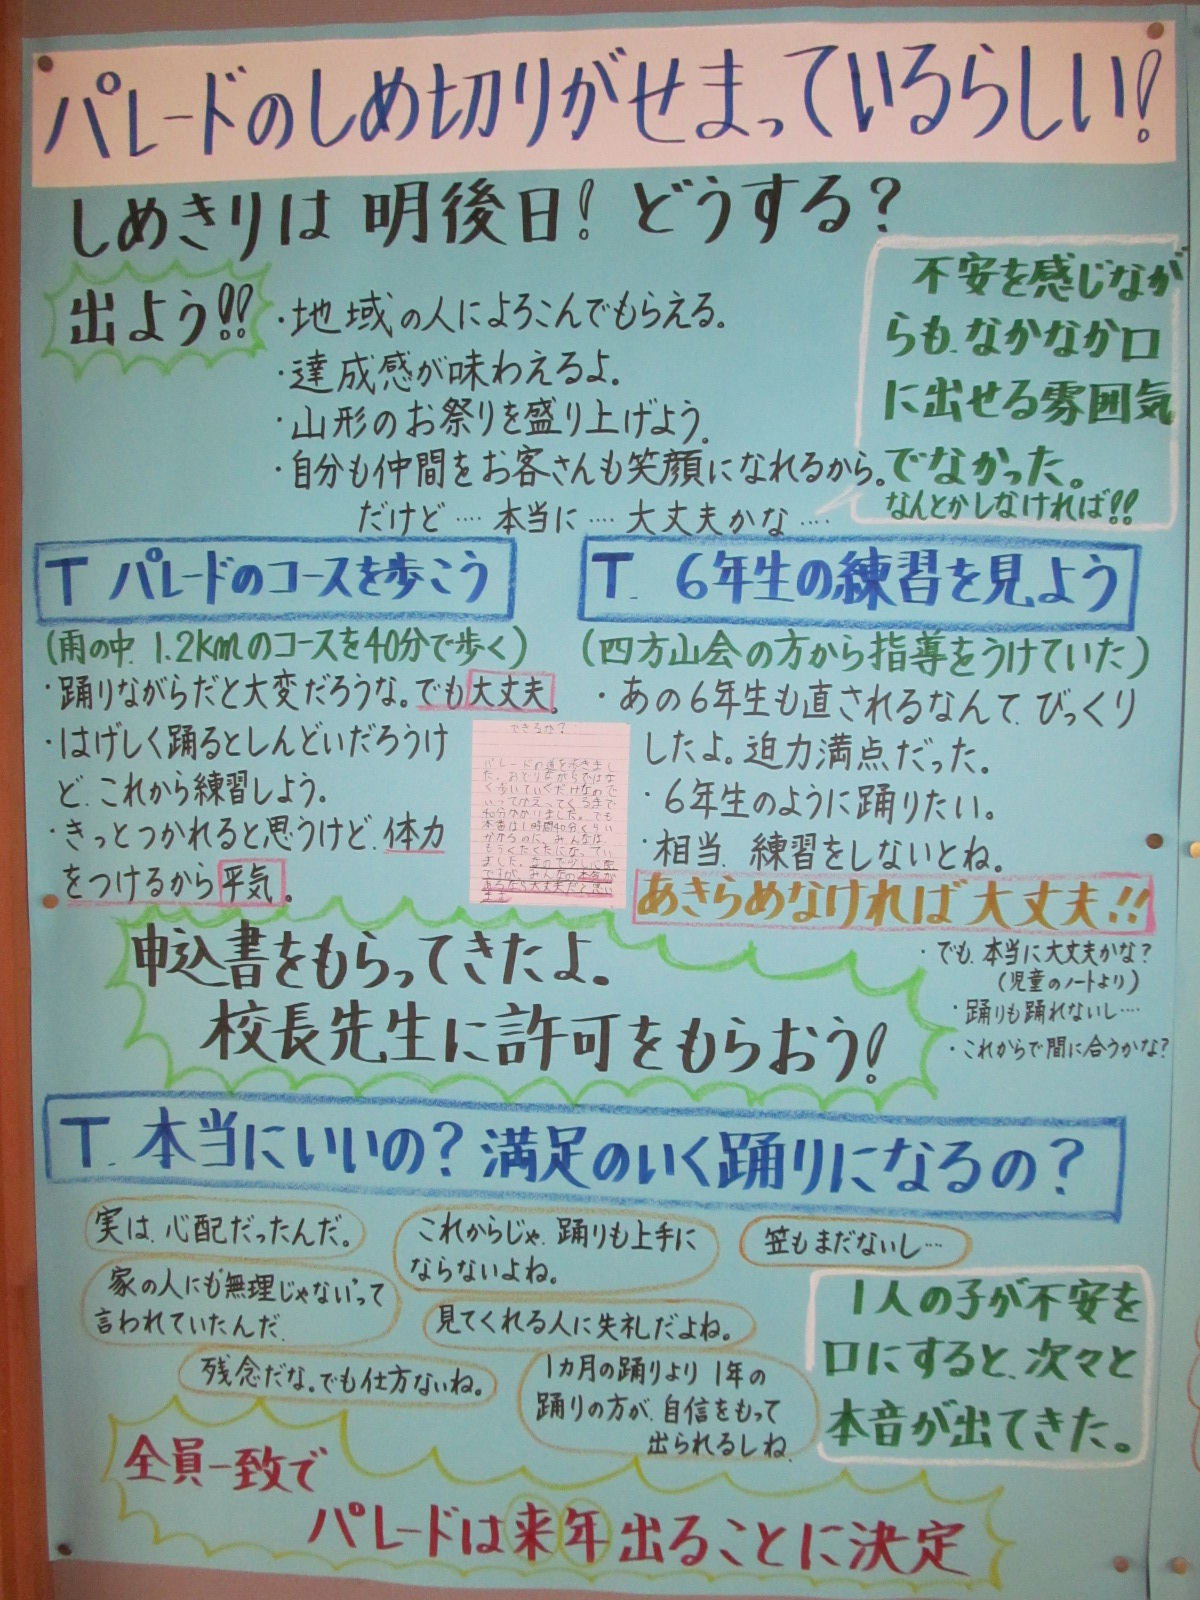 パレードのしめ切りがせまっているらしい!
しめきりは 明後日! どうする?
出よう!!
・地域の人によろこんでもらえる。
・達成感が味わえるよ。
・山形のお祭りを盛り上げよう。
・自分も仲間をお客さんも笑顔になれるから。
だけど…. 本当に …. 大丈夫かな ….
不安を感じなが
らも、なかなか口
に出せる雰囲気
でなかった。
なんとかしなければ!!
T パレードのコースを歩こう
(雨の中、1.2kmのコースを40分で歩く)
・踊りながらだと大変だろうな。でも大丈夫。
・はげしく踊るとしんどいだろうけ
ど、これから練習しよう。
・きっとつかれると思うけど、体力
をつけるから平気。
できるか?
パレードの道を歩きまし
た。おどりながらではな
く歩いていくだけなので
いってかえってくるまで
40分かかりました。でも
本番は1時間40分くらい
かかるのに、みんなは、
もうくたくたになってい
ました。なので少し心配
ですが、みんなの本気が
あるなら大丈夫だと思い
ます
T. 6年生の練習を見よう
(四方山会の方から指導をうけていた)
・あの6年生も直されるなんて、びっくり
したよ。迫力満点だった。
・6年生のように踊りたい。
・相当、練習をしないとね。
あきらめなければ大丈夫!!
・でも、本当に大丈夫かな?
(児童のノートより)
・踊りも踊れないし….
・これからで間に合うかな?
申込書をもらってきたよ。
校長先生に許可をもらおう!
T. 本当にいいの? 満足のいく踊りになるの?
実は、心配だったんだ。
これからじゃ、踊りも上手に
ならないよね。
笠もまだないし…
家の人にも“無理じゃない”って
言われていたんだ。
見てくれる人に失礼だよね。
残念だな。でも仕方ないね。
1カ月の踊りより 1年の
踊りの方が、自信をもって
出られるしね。
1人の子が不安を
口にすると、次々と
本音が出てきた。
全員一致で
パレードは来年出ることに決定